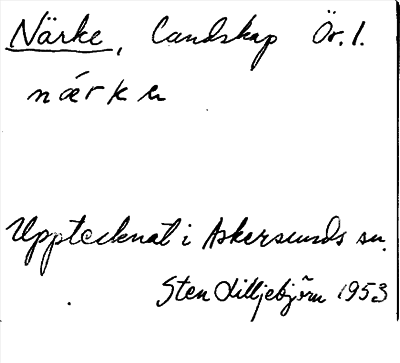 Närke, Landskap Ör. l.
nǽrkɐ
Upptecknat i Askersunds sn.
Sten Lilljebjörn 1953